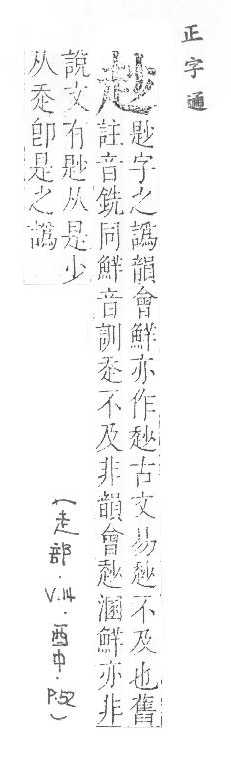 正字通
赻
尟字之譌韻會鮮亦作赻古文易赻不及也舊
註音銑同鮮音訓走不及非韻會赻溷鮮亦非
說文有尟从是少
从走卽是之譌
(走部．V.14．酉中．P.52)